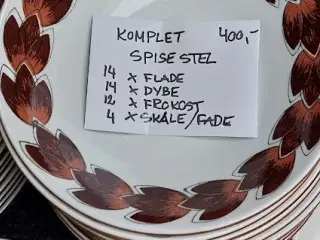 KOMPLET 400,-
SPISE STEL
14 x FLADE
14 x DYBE
12 x FROKOST
4 x SKÅLE/FADE